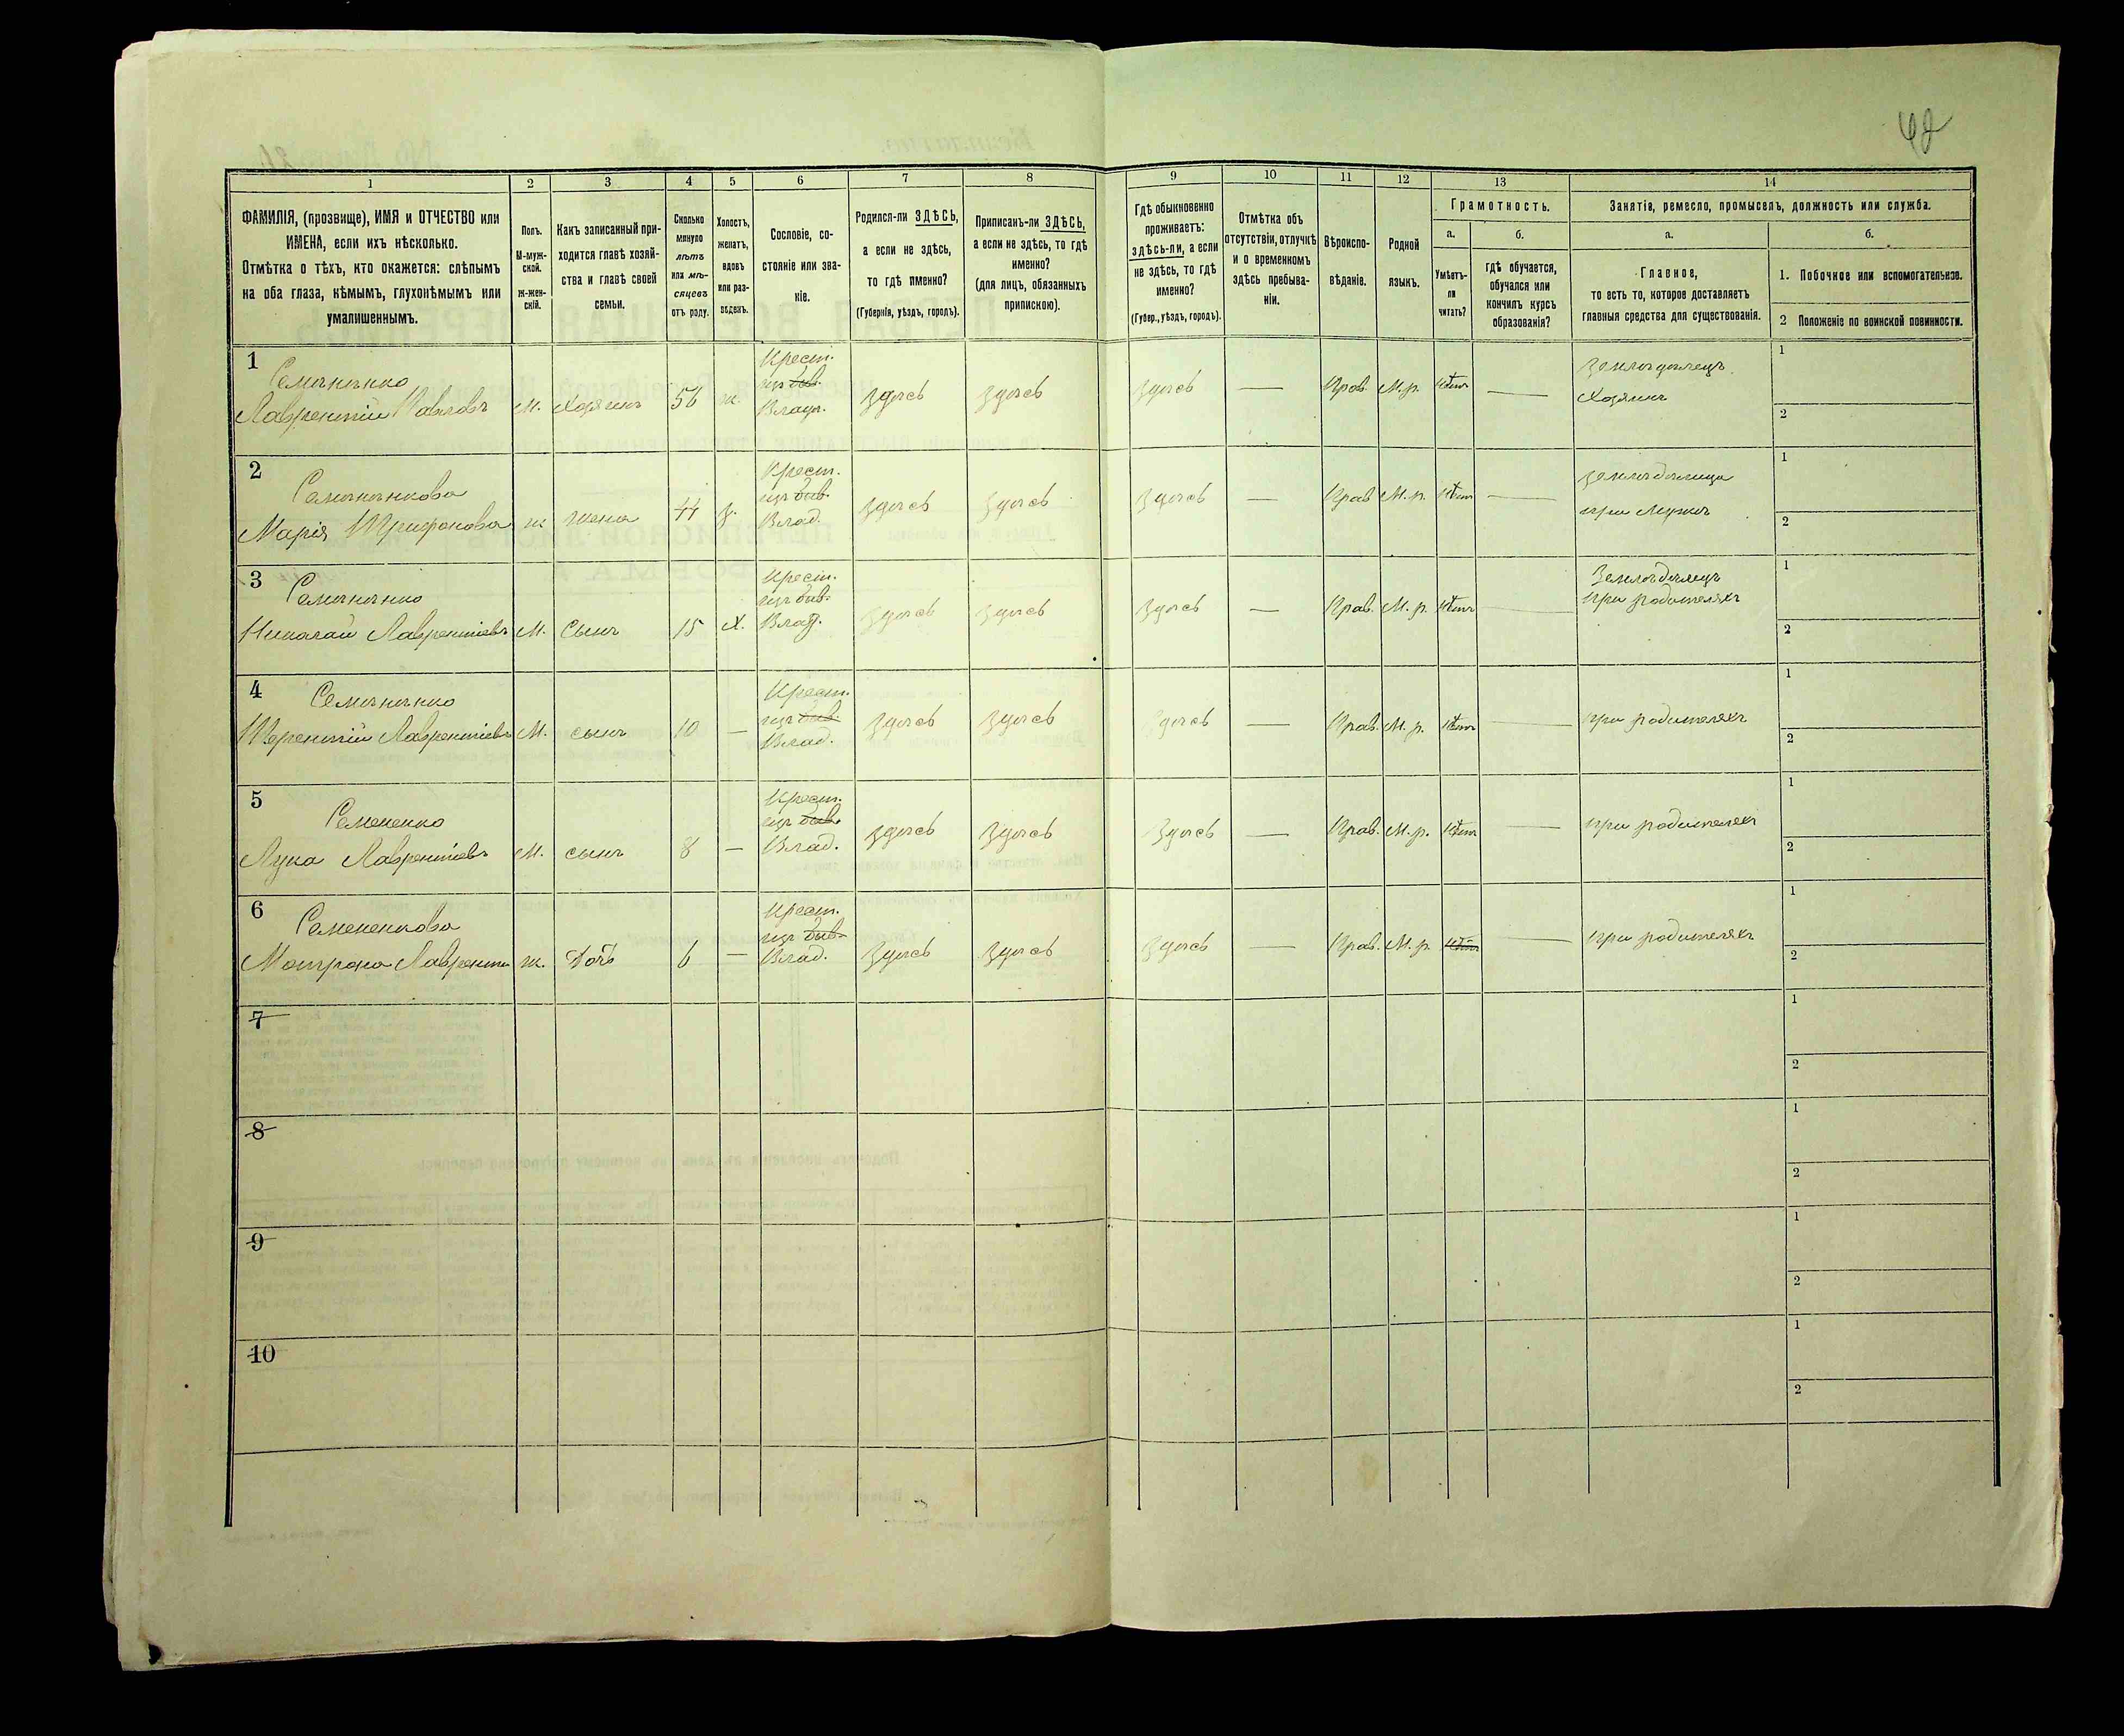 42
1 2 3 4 5 6 7 8 9 10 11 12 13 14
ФАМИЛІЯ, (прозвище), ИМЯ и ОТЧЕСТВО или
ИМЕНА, если ихъ нѣсколько.
Отмѣтка о тѣхъ, кто окажется: слѣпымъ
на оба глаза, нѣмымъ, глухонѣмымъ или
умалишеннымъ.
Полъ.
М-муж-
ской.
Ж-жен-
скій.
Какъ записанный при-
ходится главѣ хозяй-
ства и главѣ своей
семьи.
Сколько
минуло
лѣтъ
или мѣ-
сяцевъ
отъ роду.
Холостъ,
женатъ,
вдовъ
или раз-
веденъ.
Сословіе, со-
стояніе или зва-
ніе.
Родился-ли ЗДѢСЬ,
а если не здѣсь,
то гдѣ именно?
(Губернія, уѣздъ, городъ).
Приписанъ-ли ЗДѢСЬ,
а если не здѣсь, то гдѣ
именно?
(для лицъ, обязанныхъ
припискою).
Гдѣ обыкновенно
проживаетъ:
здѣсь-ли, а если
не здѣсь, то гдѣ
именно?
(Губер., уѣздъ, городъ).
Отмѣтка объ
отсутствіи, отлучкѣ
и о временномъ
здѣсь пребыва-
ніи.
Вѣроиспо-
вѣданіе.
Родной
языкъ.
Грамотность.
а.
Умѣетъ-
ли
читать?
б.
гдѣ обучается,
обучался или
кончилъ курсъ
образованія?
Занятіе, ремесло, промыселъ, должность или служба.
а.
Главное,
то есть то, которое доставляетъ
главныя средства для существованія.
б.
1. Побочное или вспомогательное.
2 Положеніе по воинской повинности.
1 Семененко
Лаврентій Павловъ М. Хозяинъ 56 ж. Крест.
изъ быв.
Влад. здѣсь здѣсь здѣсь — Прав. М.р. нѣтъ — Земледѣлецъ
Хозяинъ 1
2
2 Семененкова
Марія Трифонова ж жена 44 з. Крест.
изъ быв.
Влад. здѣсь здѣсь здѣсь — Прав М.р. нѣтъ — земледѣлица
при мужѣ 1
2
3 Семененко
Николай Лаврентіевъ М. Сынъ 15 Х. Крест.
изъ быв.
Влад. здѣсь здѣсь здѣсь — Прав. М.р. нѣтъ — Земледѣлецъ
при родителяхъ 1
2
4 Семененко
Терентій Лаврентіевъ М. сынъ 10 — Крест.
изъ быв.
Влад. здѣсь здѣсь здѣсь — Прав. М.р. нѣтъ — при родителяхъ 1
2
5 Семененко
Лука Лаврентіевъ М. сынъ 8 — Крест.
изъ быв.
Влад. здѣсь здѣсь здѣсь — Прав. М.р. нѣтъ — при родителяхъ 1
2
6 Семененкова
Мотрона Лаврентіе ж. Дочь 6 — Крест.
изъ быв.
Влад. здѣсь здѣсь здѣсь — Прав. М.р нѣтъ — при родителяхъ 1
2
7 1
2
8 1
2
9 1
2
10 1
2